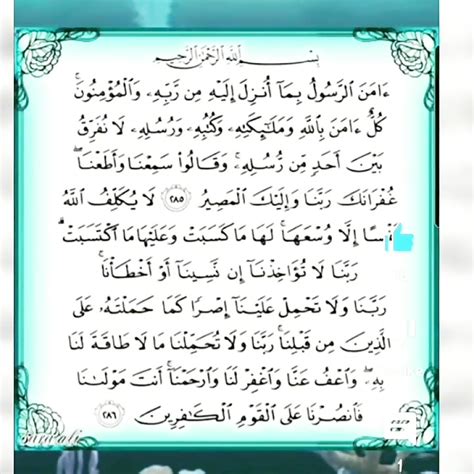 بِسْمِ ٱللَّهِ ٱلرَّحْمَٰنِ ٱلرَّحِيمِ
ءَامَنَ ٱلرَّسُولُ بِمَآ أُنزِلَ إِلَيْهِ مِن رَّبِّهِۦ وَٱلْمُؤْمِنُونَۚ
كُلٌّ ءَامَنَ بِٱللَّهِ وَمَلَٰٓئِكَتِهِۦ وَكُتُبِهِۦ وَرُسُلِهِۦ لَا نُفَرِّقُ
بَيْنَ أَحَدٍ مِّن رُّسُلِهِۦۚ وَقَالُوا۟ سَمِعْنَا وَأَطَعْنَاۖ
غُفْرَانَكَ رَبَّنَا وَإِلَيْكَ ٱلْمَصِيرُ ٢٨٥ لَا يُكَلِّفُ ٱللَّهُ
نَفْسًا إِلَّا وُسْعَهَاۚ لَهَا مَا كَسَبَتْ وَعَلَيْهَا مَا ٱكْتَسَبَتْۗ
رَبَّنَا لَا تُؤَاخِذْنَآ إِن نَّسِينَآ أَوْ أَخْطَأْنَاۚ
رَبَّنَا وَلَا تَحْمِلْ عَلَيْنَآ إِصْرًا كَمَا حَمَلْتَهُۥ عَلَى
ٱلَّذِينَ مِن قَبْلِنَاۚ رَبَّنَا وَلَا تُحَمِّلْنَا مَا لَا طَاقَةَ لَنَا
بِهِۦۖ وَٱعْفُ عَنَّا وَٱغْفِرْ لَنَا وَٱرْحَمْنَآۚ أَنتَ مَوْلَىٰنَا
فَٱنصُرْنَا عَلَى ٱلْقَوْمِ ٱلْكَٰفِرِينَ ٢٨٦